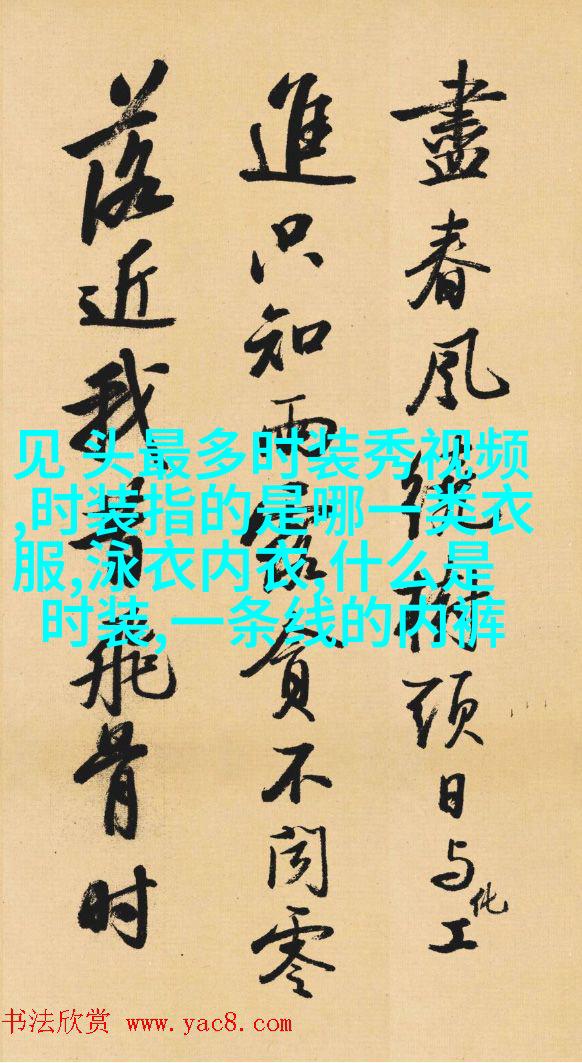 盡春風繞樹頭日与化工
進只知雨露貪不聞零
落近我昔飛骨时
见 头最多时装秀视频
,时装指的是哪一类衣
服,泳衣内衣,什么是
时装,一条线的内裤
书法欣赏 www.yac8.com